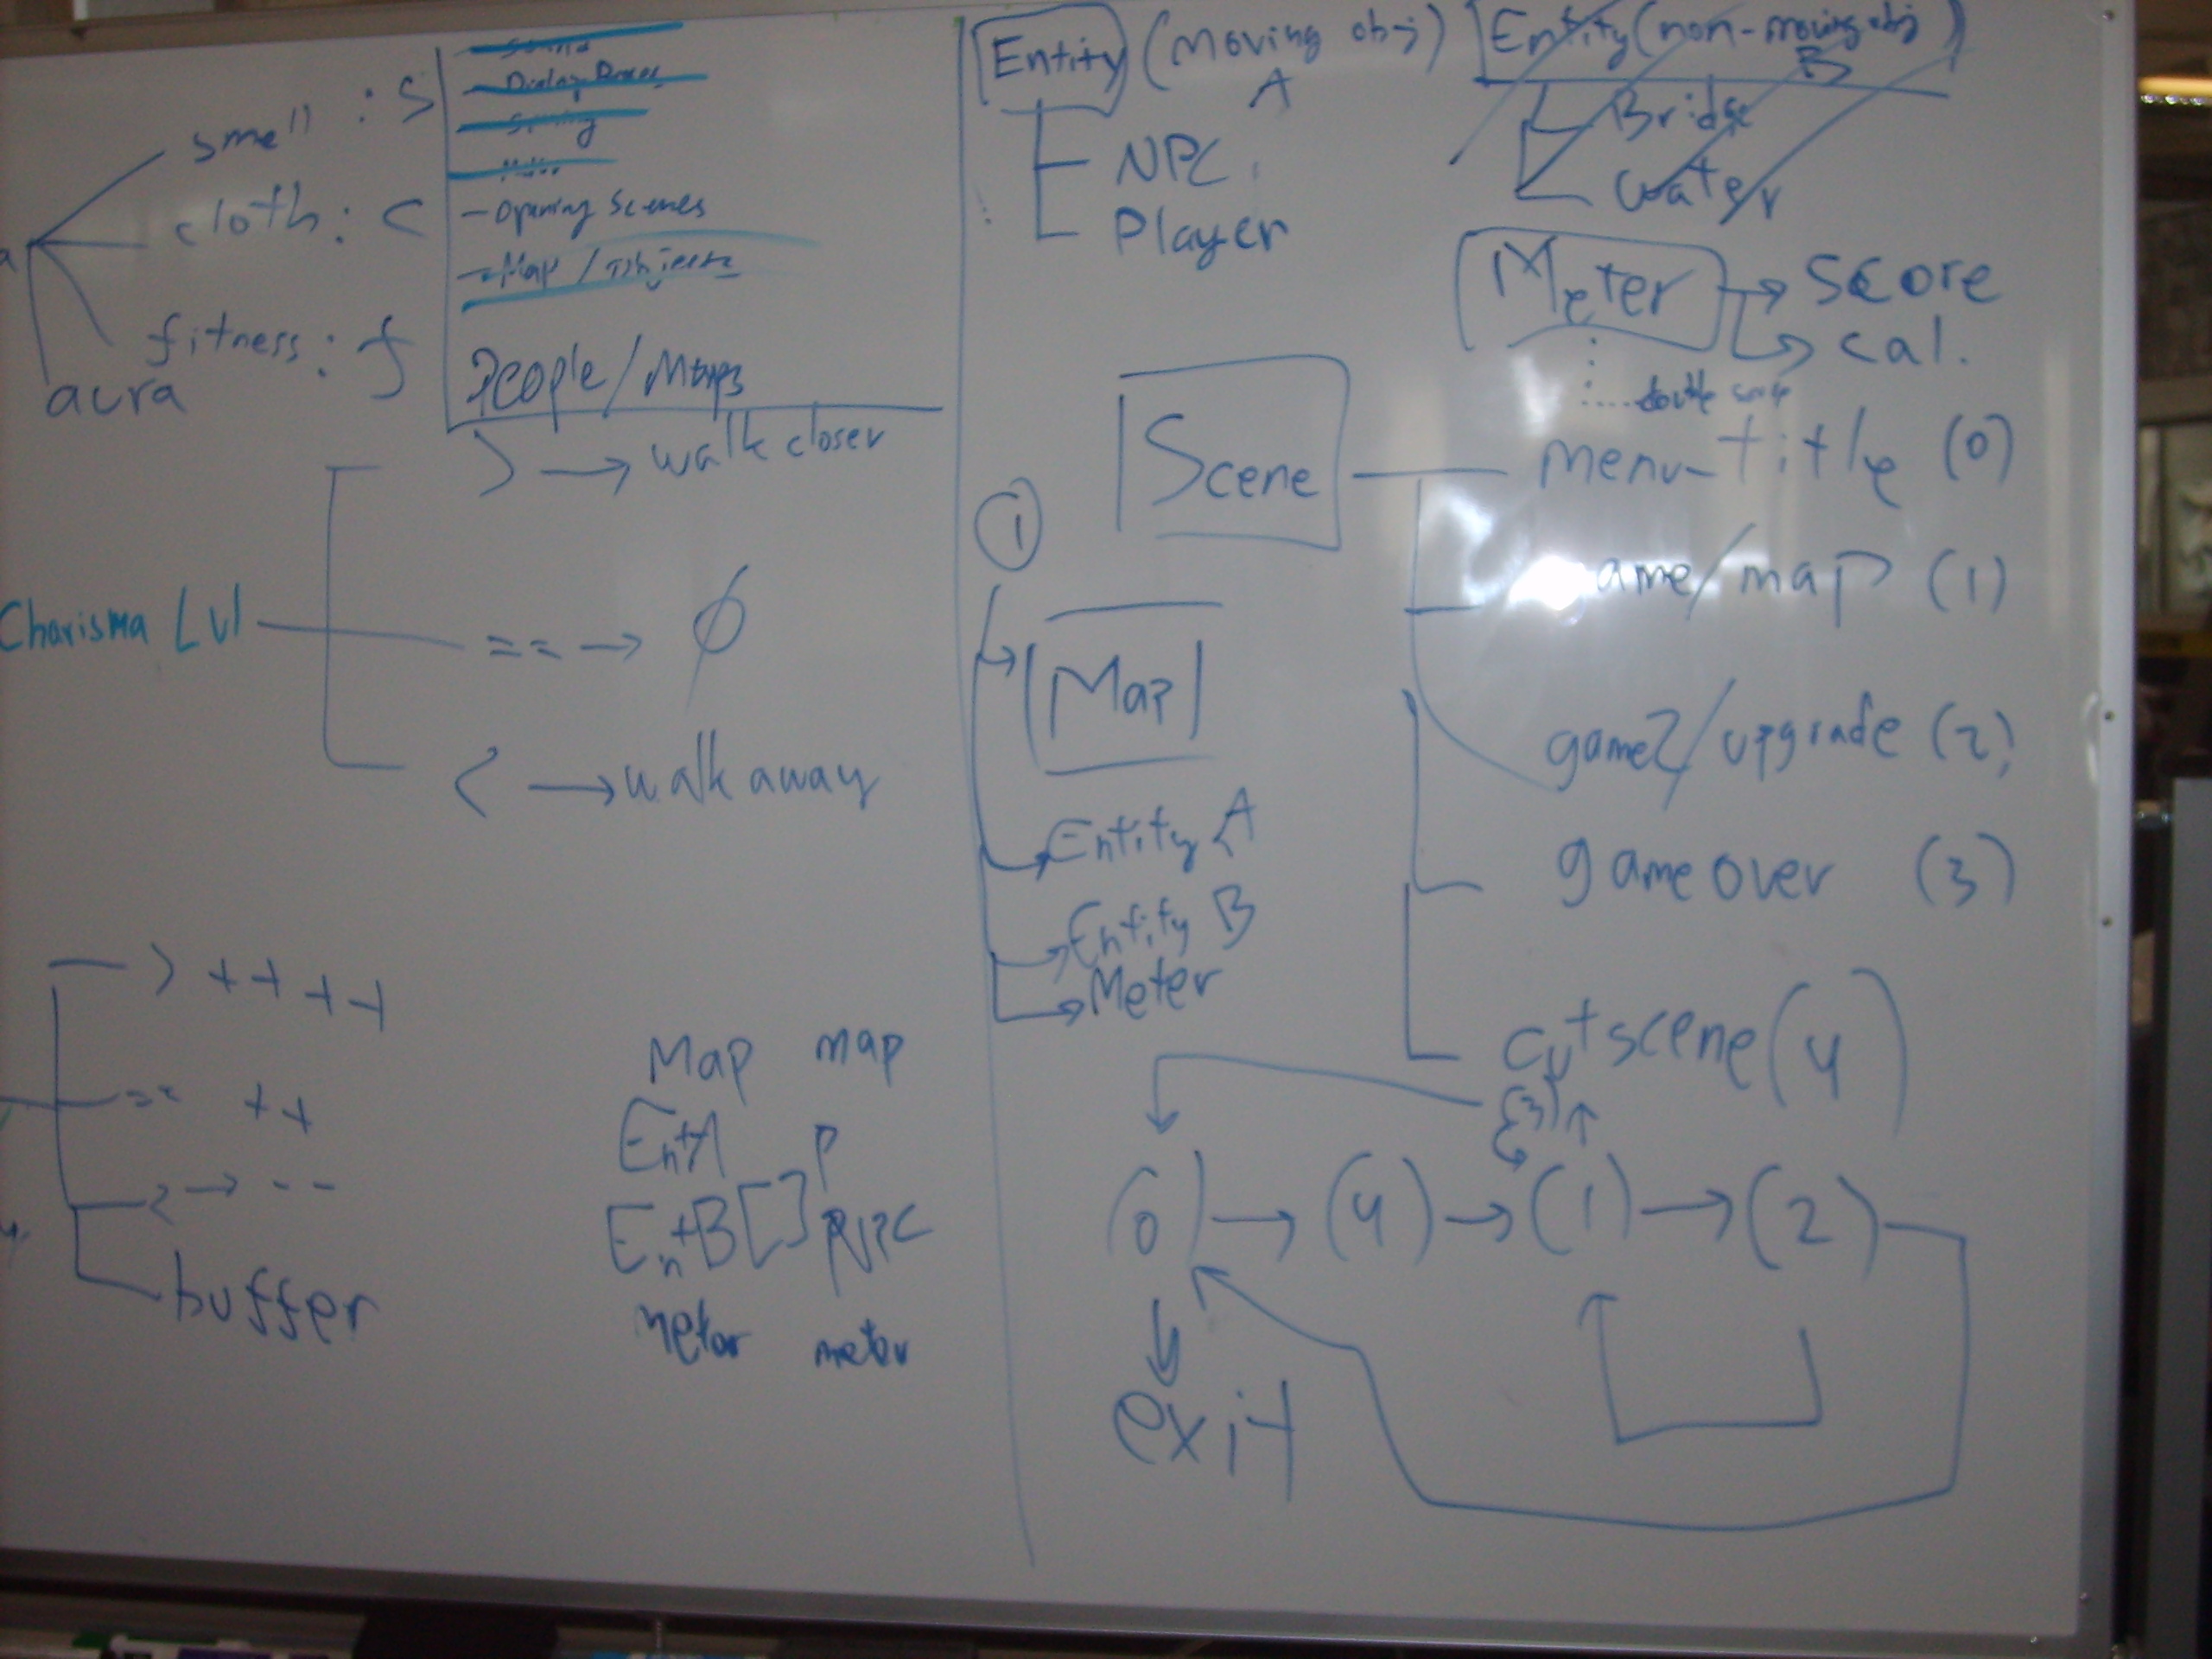 smell : S
cloth : C
fitness : f
aura
- Opening Scenes
- Map / Objects
People / Maps
Charisma Lvl
> → walk closer
== → ∅
< → walk away
> + + + +
== + +
< → - -
buffer
Map map
EntA P
EntB [] NPC
Meter meter
Entity (Moving obj)
A
NPC
Player
Entity (non-moving obj)
B
Bridge
Water
Meter → Score
→ cal.
double
Scene
menu-title (0)
game/map (1)
game2/upgrade (2)
game over (3)
cutscene (4)
①
Map
Entity A
Entity B
Meter
(3)
(0) → (4) → (1) → (2)
exit